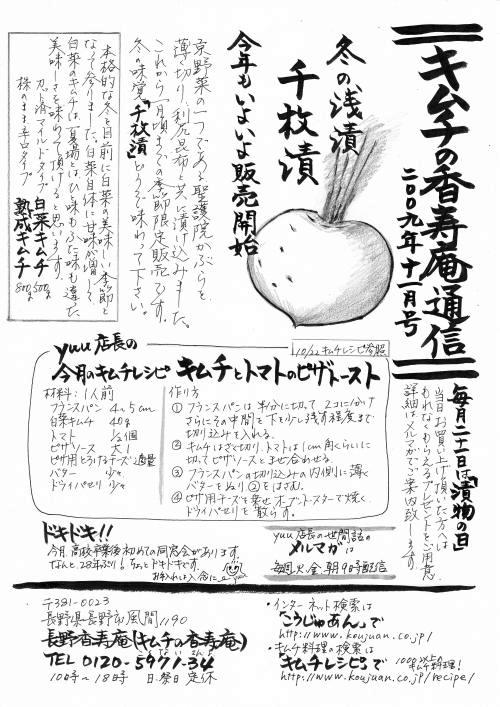 キムチの香寿庵通信
二〇〇九年十一月号
冬の浅漬
千枚漬
今年もいよいよ販売開始
京野菜の一つである聖護院かぶらを
薄く切り、利尻昆布と共に漬け込みました。
これから一月頃までの季節限定販売です。
冬の味覚「千枚漬」どうぞ味わって下さい。
本格的な冬を目前に白菜の美味しい季節と
なって参りました。白菜自体に甘味が増して
白菜のキムチは、夏場とはひと味もふた味も違った
美味しさを味わって頂けると思います。
カット済マイルドタイプ 白菜キムチ 500g
株のまま辛口タイプ 熟成キムチ 800g
yuu店長の
10/22キムチレシピ参照
今月のキムチレシピ キムチとトマトのピザトースト
材料:1人前
フランスパン 4〜5cm
白菜キムチ 40g
トマト 1/2個
ピザソース 大1
ピザ用とろけるチーズ 適量
バター 少々
ドライパセリ 少々
作り方
① フランスパンは半分に切って 2コに分け
さらにその中間を下を少し残す程度まで
切り込みを入れる。
② キムチはざく切り、トマトは1cm角くらいに
切ってピザソースとまぜ合わせる。
③ フランスパンの切り込みの内側に薄く
バターをぬり②をはさむ。
④ ピザ用チーズを乗せオーブントースターで焼く。
ドライパセリを散らす。
毎月二十一日は「漬物の日」
当日お買い上げ頂いた方へは
もれなくもらえるプレゼントをご用意
詳細はメルマガでご案内致します。
ドキドキ!!
今月、高校卒業後初めての同窓会があります。
なんと、28年ぶり!ちょっとドキドキです。
お手入れは入念に
yuu店長の世間話の
メルマガは
毎週火、金、朝9時配信
〒381-0023
長野県長野市風間1190
長野香寿庵(キムチの香寿庵)
TEL 0120-5971-34
10時〜18時 日・祭日定休
・インターネット検索は
「こうじゅあん」で
http://www.koujuan.co.jp/
・キムチ料理の検索は
「キムチレシピ」で 1000以上のキムチ料理!
http://www.koujuan.co.jp/recipe/